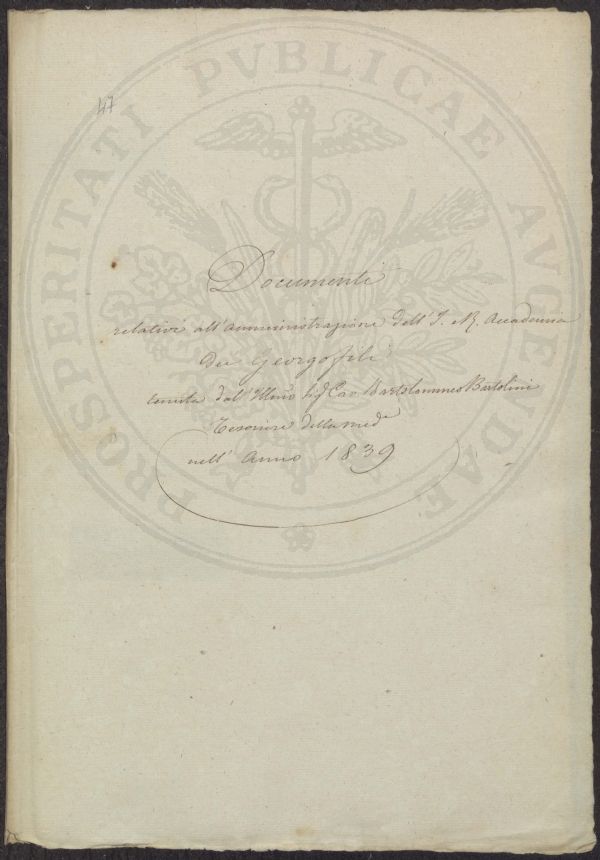 47
PROSPERITATI PVBLICAE AVGENDAE
Documenti
relativi all'Amministrazione dell'I. R. Accademia
dei Georgofili
tenuta dall'Illmo Sig Cav Bartolommeo Bartolini
Tesoriere della med.a
nell'Anno 1839